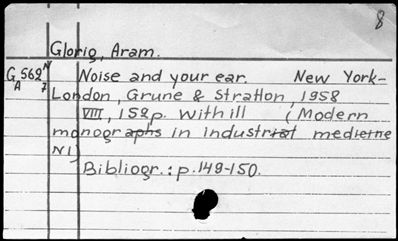 8
Glorig, Aram.
G 562 N Noise and your ear. New York-
A 7 London, Grune & Stratton, 1958
VIII, 152p. with ill (Modern
monographs in industrial medicine
N1)
Bibliogr.: p.149-150.